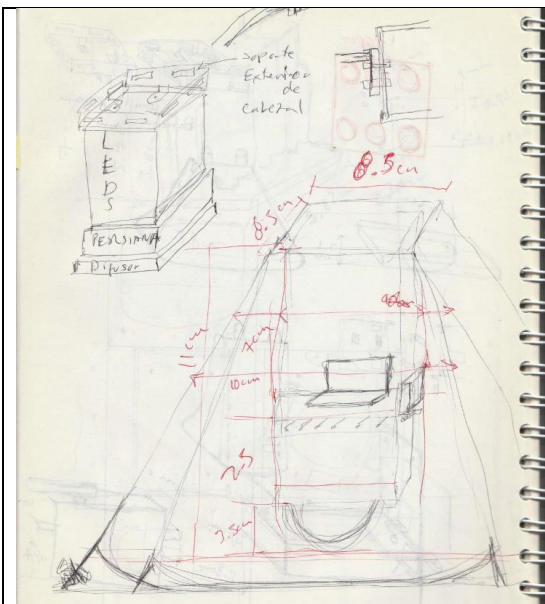 soporte
Exterior
de
cabezal
L
E
D
S
PERSIANA
Difusor
8.5cm
8.5cm
11cm
7cm
10cm
2.5
3.5cm